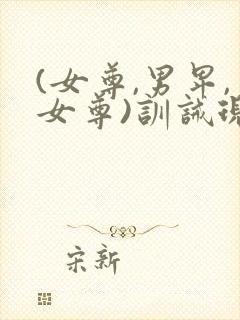 (女尊,男卑,
女尊)訓誡現
宋新